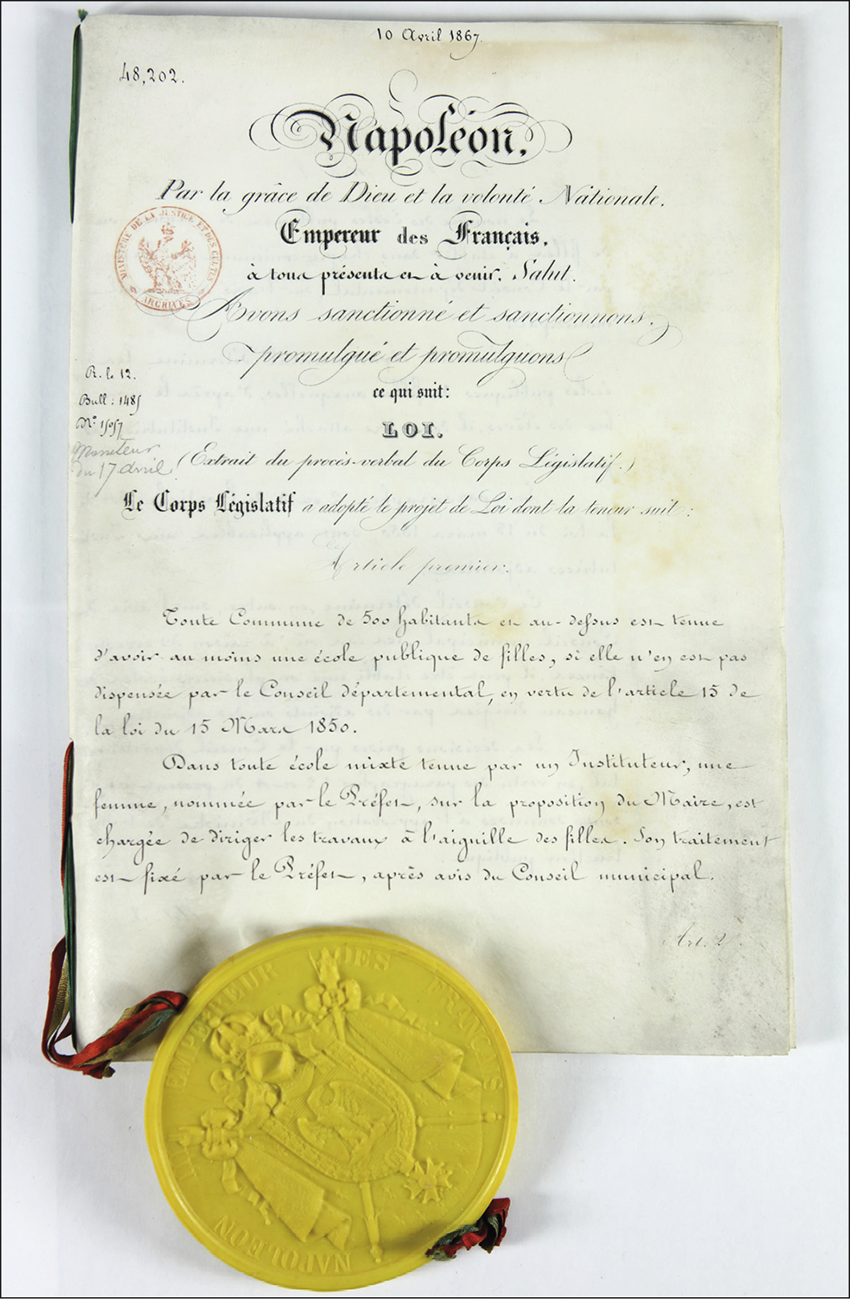 10 Avril 1867.
48,202.
Napoléon,
Par la grâce de Dieu et la volonté Nationale,
Empereur des Français,
à tous présents et à venir, Salut.
MINISTÈRE DE LA JUSTICE ET DES CULTES
ARCHIVES
Avons sanctionné et sanctionnons,
promulgué et promulguons
ce qui suit:
R. le 12.
Bull: 1485
N° 15057
Moniteur
du 17 avril
LOI.
(Extrait du procès-verbal du Corps Législatif.)
Le Corps Législatif a adopté le projet de Loi dont la teneur suit:
Article premier.
Toute Commune de 500 habitants et au-dessus est tenue
d'avoir au moins une école publique de filles, si elle n'en est pas
dispensée par le Conseil départemental, en vertu de l'article 15 de
la loi du 15 Mars 1850.
Dans toute école mixte tenue par un Instituteur, une
femme, nommée par le Préfet, sur la proposition du Maire, est
chargée de diriger les travaux à l'aiguille des filles. Son traitement
est fixé par le Préfet, après avis du Conseil municipal.
Art. 2
NAPOLEON III EMPEREUR DES FRANÇAIS